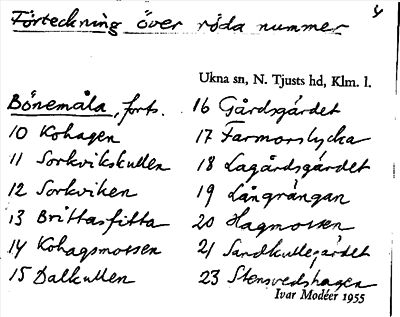 Förteckning över röda nummer
4
Ukna sn, N. Tjusts hd, Klm. l.
Bönemåla, forts.
10 Kohagen
11 Sorkvikskullen
12 Sorkviken
13 Brittasfitta
14 Kohagsmossen
15 Dalkullen
16 Gårdsgärdet
17 Farmorslycka
18 Lagårdsgärdet
19 Långrängan
20 Hagmossen
21 Sandkullegärdet
23 Stensvedshagen
Ivar Modéer 1955